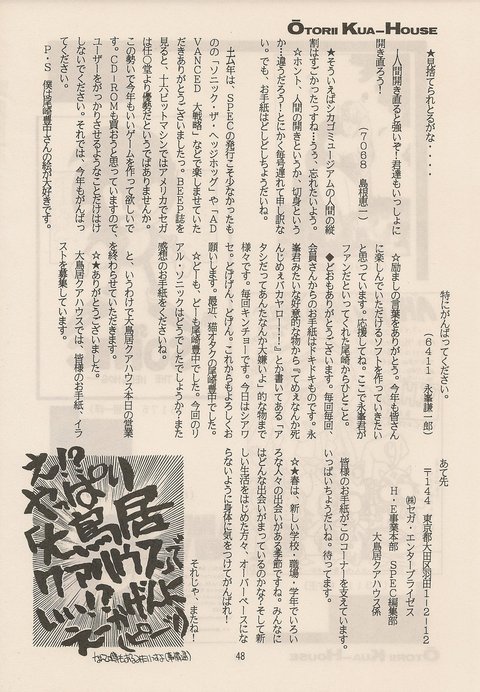 ŌTORII KUA–HOUSE
★見捨てられとるがな・・・・
ー人間開き直ると強いぞ！君達もいっしょに
開き直ろう！
（7068 島根恵二）
★そういえばシカゴミュージアムの人間の縦
割はすごかったっすね…うぅ、忘れたいよう。
☆ホント、人間の開きというか、切身という
か…違うだろう！とにかく毎号遅れて申し訳な
い。でも、お手紙はどしどしちょうだいね。
土ム年は、SPECの発行こそ少なかったも
のの「ソニック・ザ・ヘッジホッグ」や「AD
VANCED 大戦略」などで楽しませていた
だきありがとうございましたっ。BEEP誌を
見ると、十六ビットマシンではアメリカでセガ
は任〇堂より優勢だというではありませんか。
この勢いで今年もいいゲームを作って欲しいで
す。CD－ROMも買おうと思っていますので、
ユーザーをがっかりさせるようなことだけはけ
しないでください。それでは、今年もがんばっ
てください。
P・S 僕は尾崎豊中さんの絵が大好きです。
特にがんばってください。
（6411 永峯謙一郎）
☆励ましの言葉をありがとう。今年も皆さん
に楽しんでいただけるソフトを作っていきたい
と思っています。応援してね。ここで永峯君が
ファンだといってくれた尾崎からひとこと。
◆どおもありがとうございます。毎回毎回、
会員さんからのお手紙はドキドキものです。永
峯君みたいな好意的な物から『てめえなんか死
んじめえバカヤロー！！』とか書いてある「ア
タシだってあんたなんか大嫌いよ」的な物まで
様々です。毎回キンチョーです。今日はシアワ
セ。とげげん、どげん。これからもよろしくお
願いします。最近、猫オタクの尾崎豊中でした。
☆どーも、どーも尾崎豊中でした。今回のリ
アル・ソニックはどうでしたでしょうか？また
感想のお手紙をくださいね。
と、いうわけで大鳥居クアハウス本日の営業
を終わらせていただきます。
☆★ありがとうございました。
大鳥居クアハウスでは、皆様のお手紙、イラ
ストを募集しています。
あて先
〒144 東京都大田区羽田1－2－12
㈱セガ・エンタープライゼス
H・E事業本部 SPEC編集部
大鳥居クアハウス係
皆様のお手紙がこのコーナーを支えています。
いっぱいちょうだいね。待ってます。
☆★春は、新しい学校・職場・学年でいろい
ろな人々の出会いがある季節ですね。みんなに
はどんな出会いがまっているのかな？そして新
しい生活をはじめた方々、オーバーペースにな
らないように身体に気をつけてがんばれ！
それじゃ、またね！
え!?
やっぱい
大鳥居
クアハウスって
いい!?
48